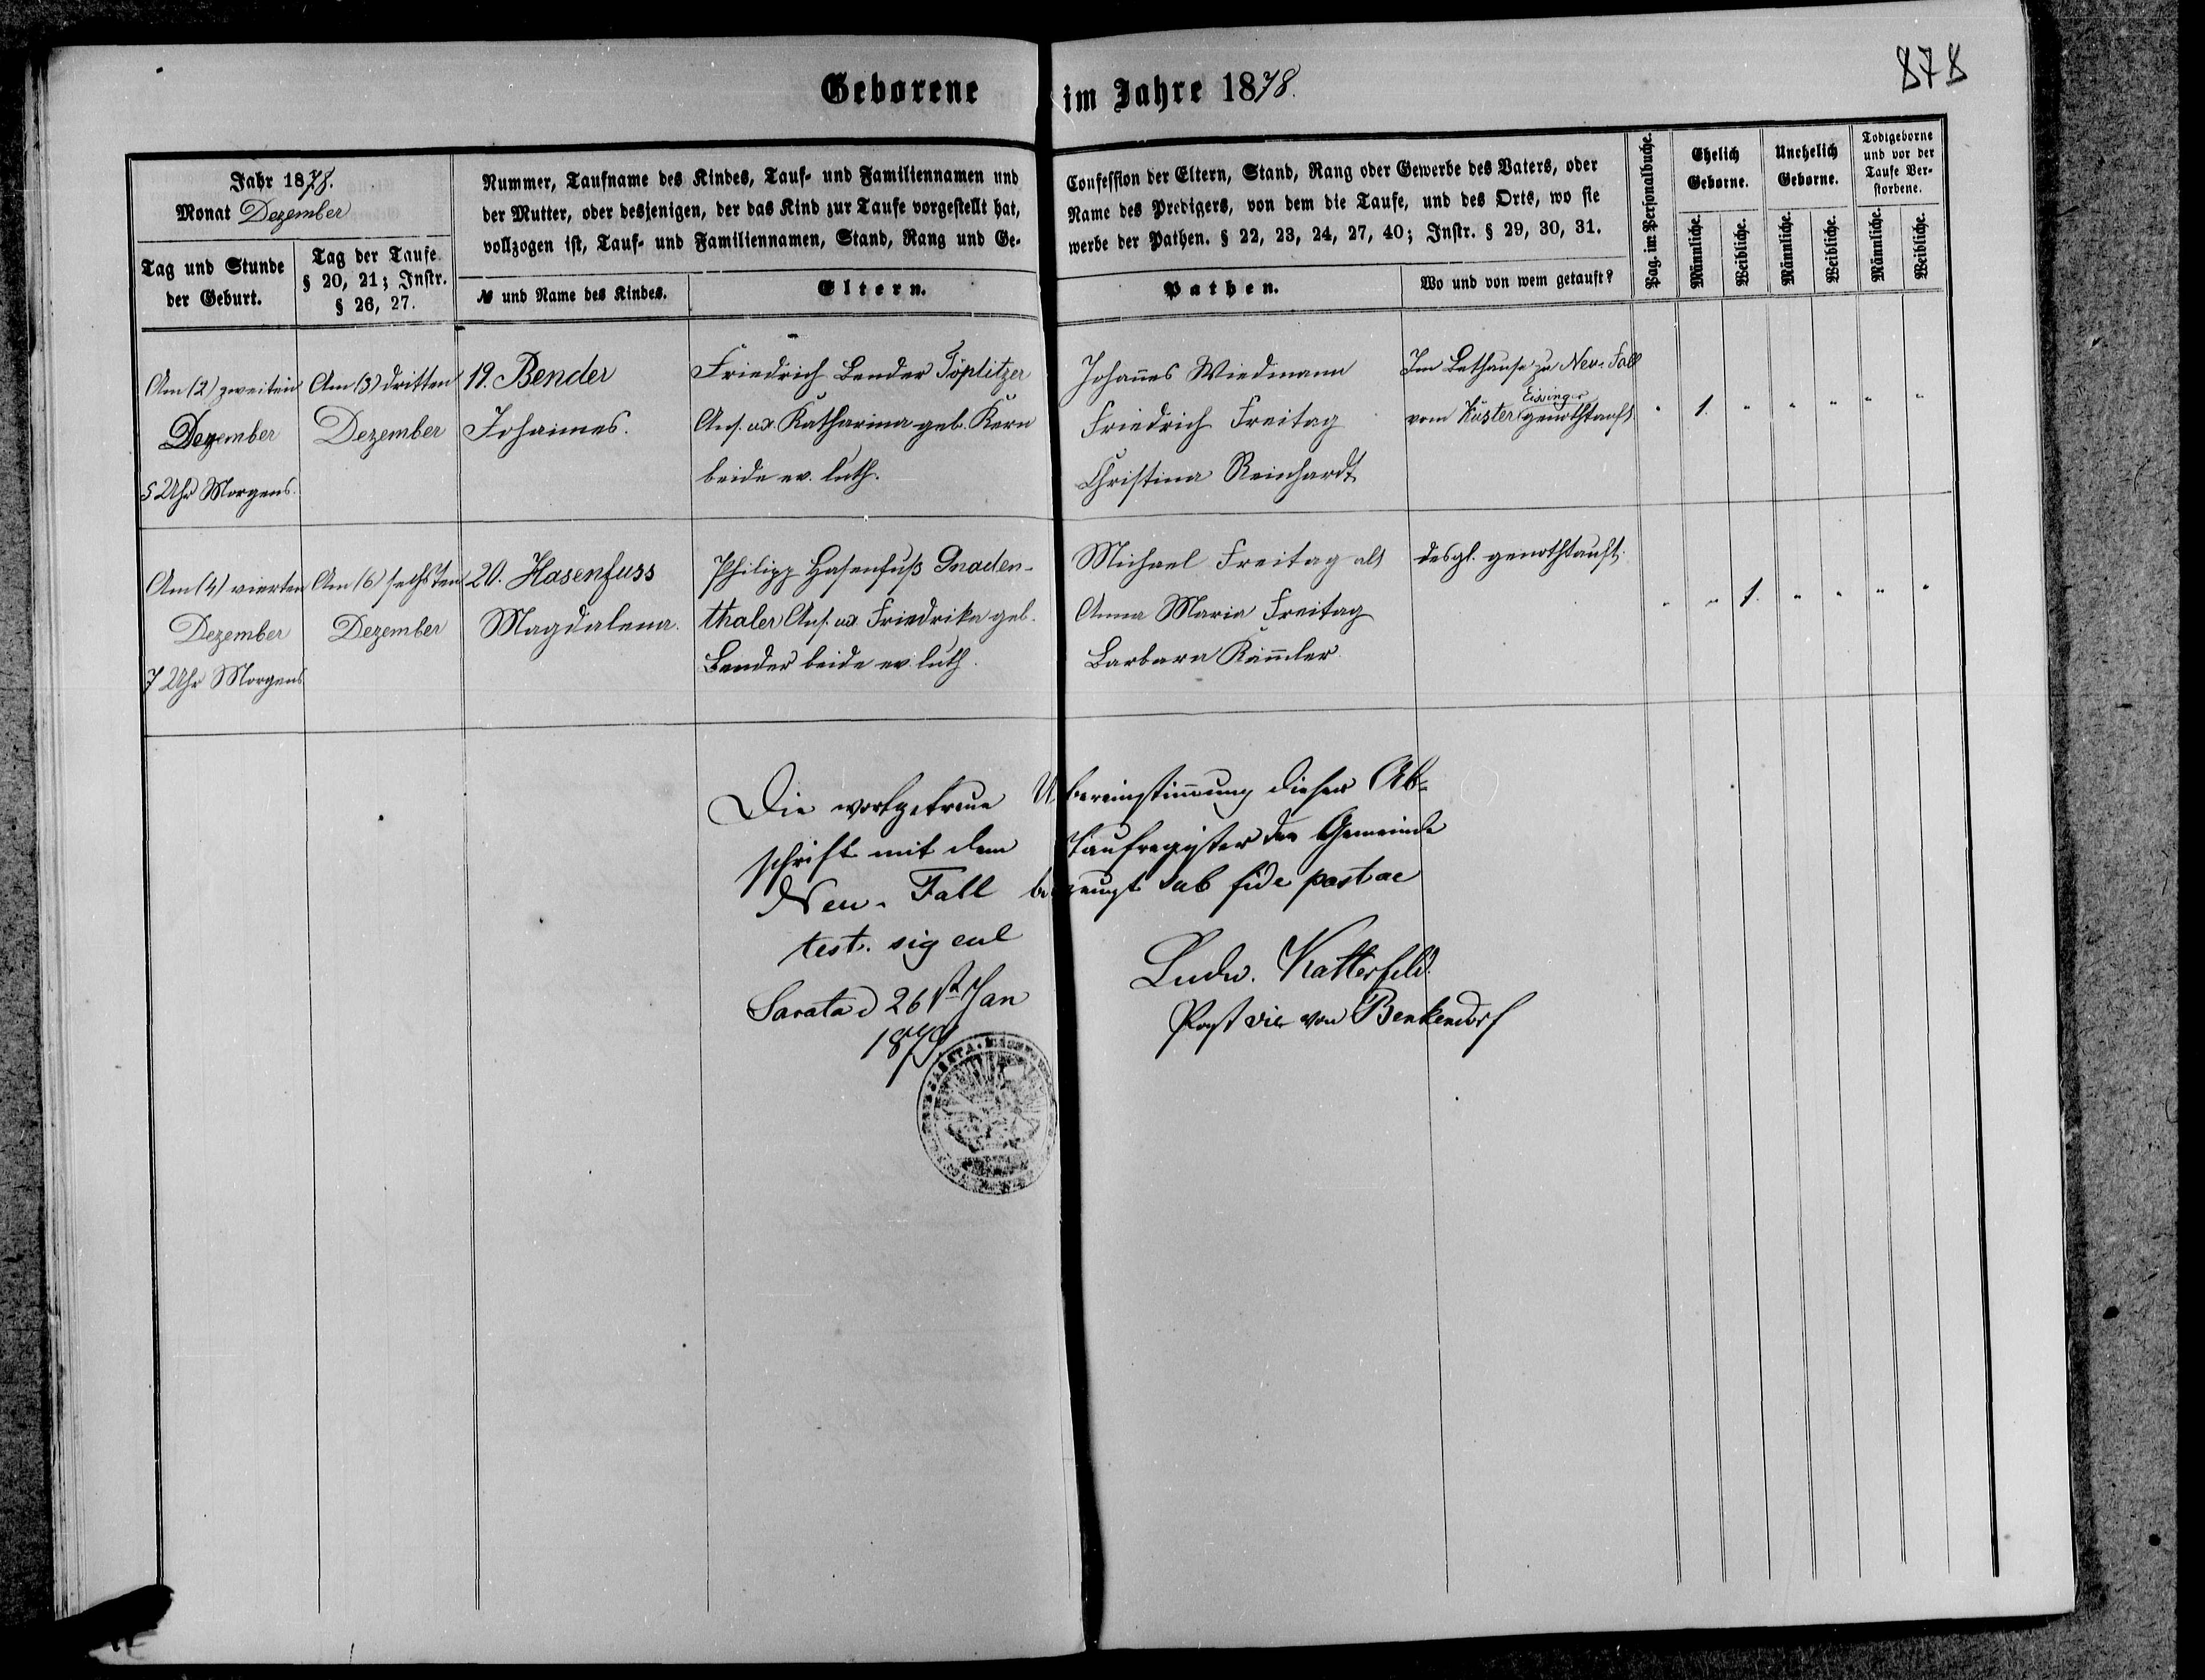 878
Geborene im Jahre 1878.
Jahr 1878.
Monat Dezember
Tag und Stunde
der Geburt.
Tag der Taufe
§ 20, 21; Instr.
§ 26, 27.
Nummer, Taufname des Kindes, Tauf- und Familiennamen und
der Mutter, oder desjenigen, der das Kind zur Taufe vorgestellt hat,
vollzogen ist, Tauf- und Familiennamen, Stand, Rang und Ge-
№ und Name des Kindes.
Eltern.
Confession der Eltern, Stand, Rang oder Gewerbe des Vaters, oder
Name des Predigers, von dem die Taufe, und des Orts, wo sie
werbe der Pathen. § 22, 23, 24, 27, 40; Instr. § 29, 30, 31.
Pathen.
Wo und von wem getauft?
Pag. im Personalbuche.
Ehelich
Geborne.
Unehelich
Geborne.
Todtgeborne
und vor der
Taufe Ver-
storbene.
Männliche.
Weibliche.
Männliche.
Weibliche.
Männliche.
Weibliche.
Am (2) zweiten
Dezember
5 Uhr Morgens.
Am (3) dritten
Dezember
19. Bender
Johannes.
Friedrich Bender Töplitzer
Ans. ux. Katharina geb. Kern
beide ev. luth.
Johannes Wiedmann
Friedrich Freitag
Christina Reinhardt
Im Bethause zu Neu-Fall
Eissinger
vom Küster genothtauft
" 1. " " " " "
Am (4) vierten
Dezember
7 Uhr Morgens
Am (6) sechsten
Dezember
20. Hasenfuss
Magdalena.
Philipp Hasenfuß Gnaden-
thaler Ans. ux. Friedrika geb.
Bender beide ev. luth.
Michael Freitag alt
Anna Maria Freitag
Barbara Kämler
desgl. genothtauft.
" " 1. " " " "
Die wortgetreue Übereinstimmung dieser Ab-
schrift mit dem Taufregister der Gemeinde
Neu-Fall bezeugt sub fide past ac
test. sig eccl
Ludw. Katterfeld.
Sarata d 26st Jan
1879
Past vic von Benkendorf
SARATA